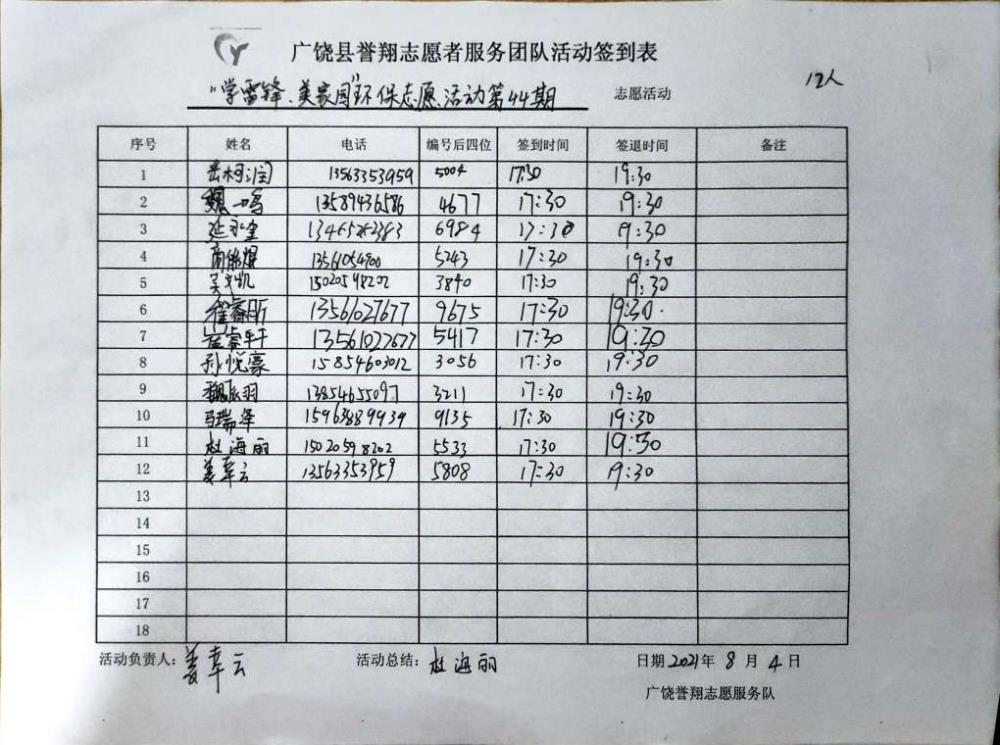 广饶县誉翔志愿者服务团队活动签到表
12人
"学雷锋、美家园"环保志愿活动第44期 志愿活动
序号 姓名 电话 编号后四位 签到时间 签退时间 备注
1 岳柯润 13563353959 5004 17:30 19:30
2 魏一鸣 13589436586 4677 17:30 19:30
3 6984 17:30 19:30
4 5243 17:30 19:30
5 吴文凯 15020598202 3840 17:30 19:30
6 崔睿昕 13561027677 9675 17:30 19:30
7 崔睿轩 13561027677 5417 17:30 19:30
8 孙悦豪 15854603012 3056 17:30 19:30
9 13854655097 3211 17:30 19:30
10 马瑞泽 15963889939 9135 17:30 19:30
11 杜海丽 15020598202 5533 17:30 19:30
12 姜幸云 13563353959 5808 17:30 19:30
13
14
15
16
17
18
活动负责人：姜幸云 活动总结：杜海丽 日期 2021年 8 月 4 日
广饶誉翔志愿服务队